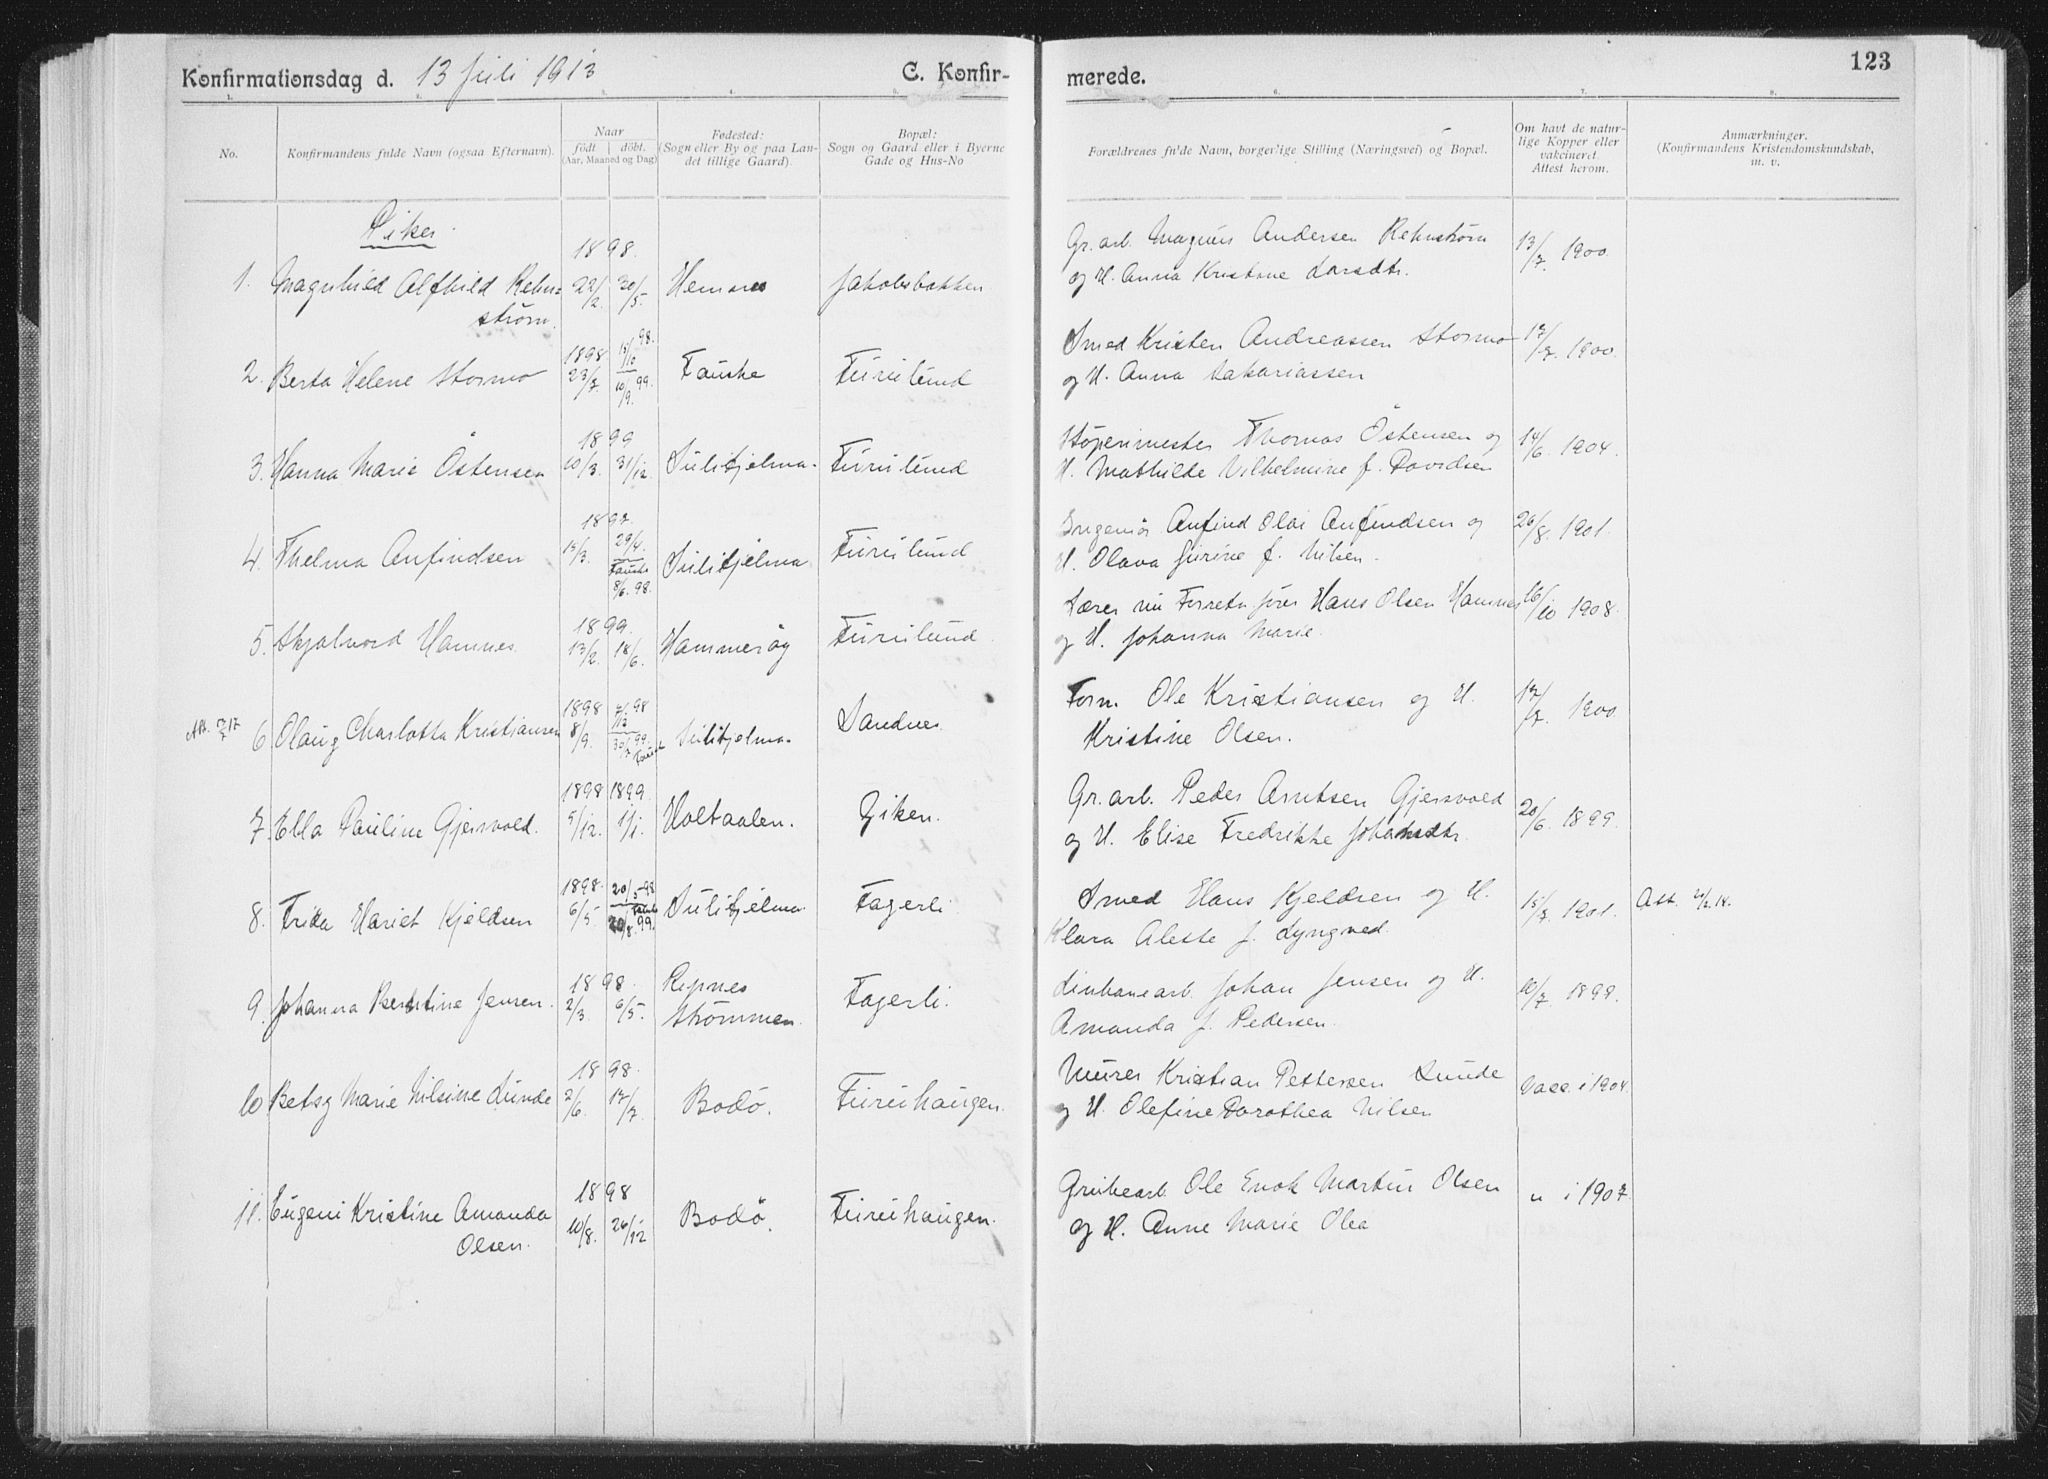 Konfirmationsdag d. 13 Juli 1913 C. Konfir-
merede. 123
1. 2. 3. 4. 5. 6. 7. 8.
No.
Konfirmandens fulde Navn (ogsaa Efternavn).
Naar
født døbt.
(Aar, Maaned og Dag)
Fødested:
(Sogn eller By og paa Lan-
det tillige Gaard).
Bopæl:
Sogn og Gaard eller i Byerne
Gade og Hus-No
Forældrenes fulde Navn, borgerlige Stilling (Næringsvei) og Bopæl.
Om havt de natur-
lige Kopper eller
vakcineret.
Attest herom.
Anmærkninger.
(Konfirmandens Kristendomskundskab,
m. v.
Piker.
1898.
1. Magnhild Alfhild Rehn= 22/2. 20/5. Hemnes Jakobsbakken
strøm.
Gr. arb. Magnus Andersen Rehnstrøm 13/7. 1900.
og H. Anna Kristine Larsdtr.
1898 15/10 98.
2. Berta Helene Stormo 23/7. 10/9. 99. Fauske Furulund
Smed Kristen Andreassen Stormo 17/7. 1900.
og H. Anna Zakariassen
1899
3. Hanna Marie Östensen 10/3. 31/12. Sulitjelma. Furulund
Thomas Östensen og 14/6. 1904.
H. Mathilde Vilhelmine f. Davidsen
1897.
4. Thelma Anfindsen 15/3. 29/4. Sulitjelma Furulund
Fauske
8/6. 98.
Ingeniør Anfind Olai Anfindsen og 26/8. 1901.
H. Olava Jurine f. Nilsen.
1899.
5. Skjalvord Hamnes. 13/2. 18/6. Hammerøy Furulund
Lærer nu Forretn.fører Hans Olsen Hamnes 16/10 1908.
og H. Johanna Marie.
1898
6. Olaug Charlotta Kristiansen 8/9. 30/7 99 Fauske Sulitjelma. Sandnes
Form. Ole Kristiansen og H. 17/7. 1900
Kristine Olsen.
1898 1899.
7. Ella Pauline Gjersvold. 5/12. 1/1. Holtaalen. Giken.
Gr. arb. Peder Arntsen Gjersvold 20/6. 1899.
og H. Elise Fredrikke Johansdtr.
1898. 20/5 98
8. Frida Hariet Kjeldsen 6/5. 20/8. 99. Sulitjelma. Fagerli
Smed Hans Kjeldsen og H. 15/7. 1901. Att. 21/2. 14.
Klara Aleste f. Lyngved.
1898.
9. Johanna Berntine Jensen. 2/3. 6/5. Repnes Fagerli.
Strømmen.
Linbanearb. Johan Jensen og H. 10/7. 1899.
Amanda f. Pedersen.
1898.
10 Betsy Marie Nilsine Lunde 2/6. 17/7. Bodø. Furuhaugen.
Murer Kristian Pettersen Lunde Vacc. i 1904.
og H. Olefine Dorothea Nilsen
1898
11. Eugeni Kristine Amanda 10/8. 26/12 Bodø. Furuhaugen.
Olsen.
Grubearb. Ole Enok Martin Olsen " i 1907
og H. Anne Marie Olea